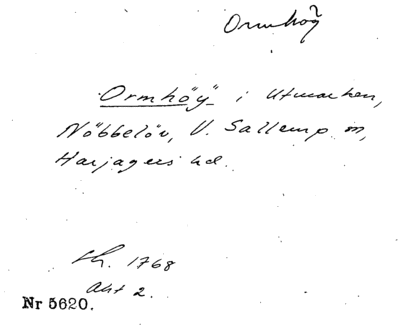 Ormhög
Ormhöÿ i Utmarken,
Nöbbelöv, V. Sallerup sn,
Harjagers hd.
sk. 1768
Akt 2.
Nr 5620.